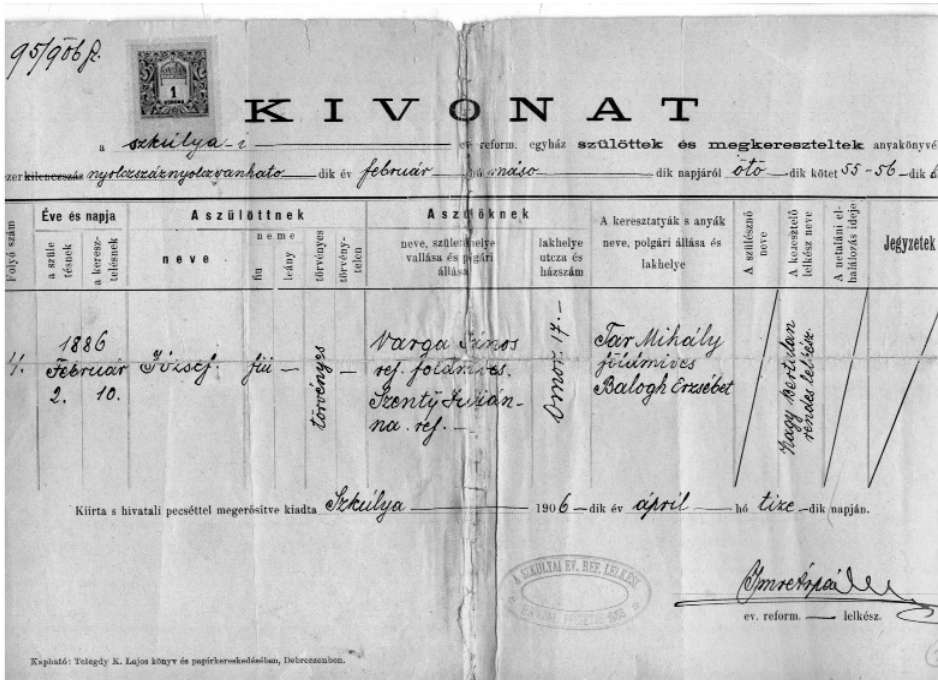 95/906 sz.
1
KORONA
KIVONAT
a szkúlya-i ev. reform. egyház szülöttek és megkereszteltek anyakönyvé
zer kilenczszáz nyolczszáznyolczvanhato dik év február hó máso dik napjáról ötö dik kötet 55-56 dik
Folyó szám
Éve és napja
a szüle tésnek
a keresz- telésnek
A szülöttnek
neve
neme
fiu
leány
törvényes
törvény- telen
A szülőknek
neve, születéshelye vallása és polgári állása
lakhelye utcza és házszám
A keresztatyák s anyák neve, polgári állása és lakhelye
A szülésznő neve
A keresztelő lelkész neve
A netaláni el- halálozás ideje
Jegyzetek
4.
1886
Február
2. 10.
József.
fiú
törvényes
Varga János
ref. földmives.
Szenty Julián-
na. ref.
Omor. 17.
Tar Mihály
földmives
Balogh Erzsébet
Nagy Bertalan
rendes lelkész.
Kiirta s hivatali pecséttel megerősítve kiadta Szkúlya 1906 dik év ápril hó tize dik napján.
A SZKULYAI EV. REF. LELKÉSZ
Imre Árpád
ev. reform. lelkész.
Kapható: Telegdy K. Lajos könyv és papirkereskedésében, Debreczenben.